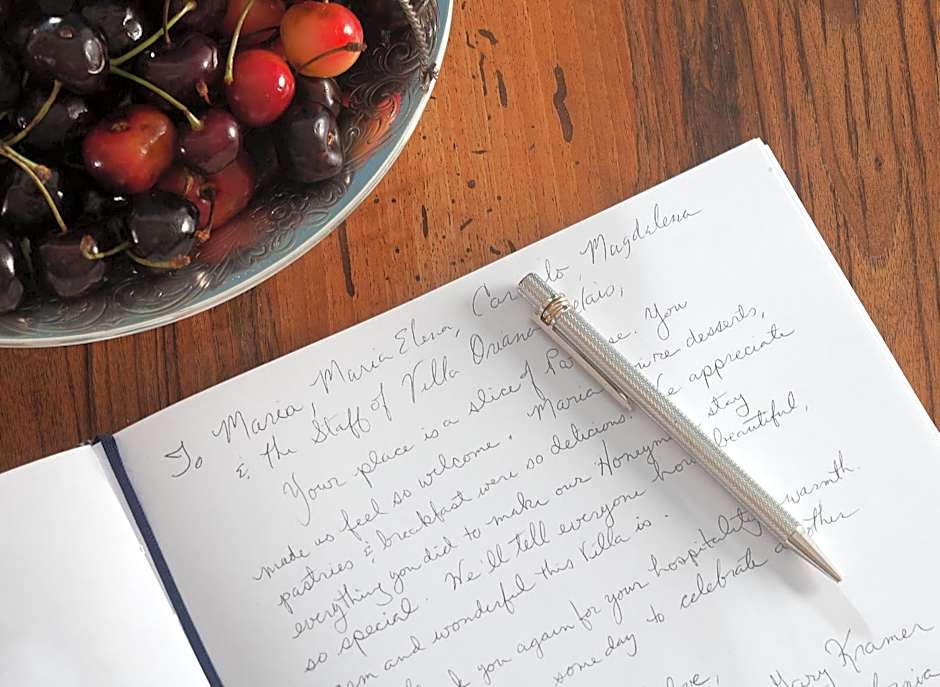 To Maria, Maria Elena, Magdalena
& the Staff of Villa
Your place is a slice of You
made us feel so welcome. Maria desserts,
pastries & breakfast were so delicious. We appreciate
everything you did to make our Honeymoon stay
so special. We'll tell everyone how beautiful,
and wonderful this Villa is.
you again for your hospitality & warmth.
some day to celebrate another
Kramer